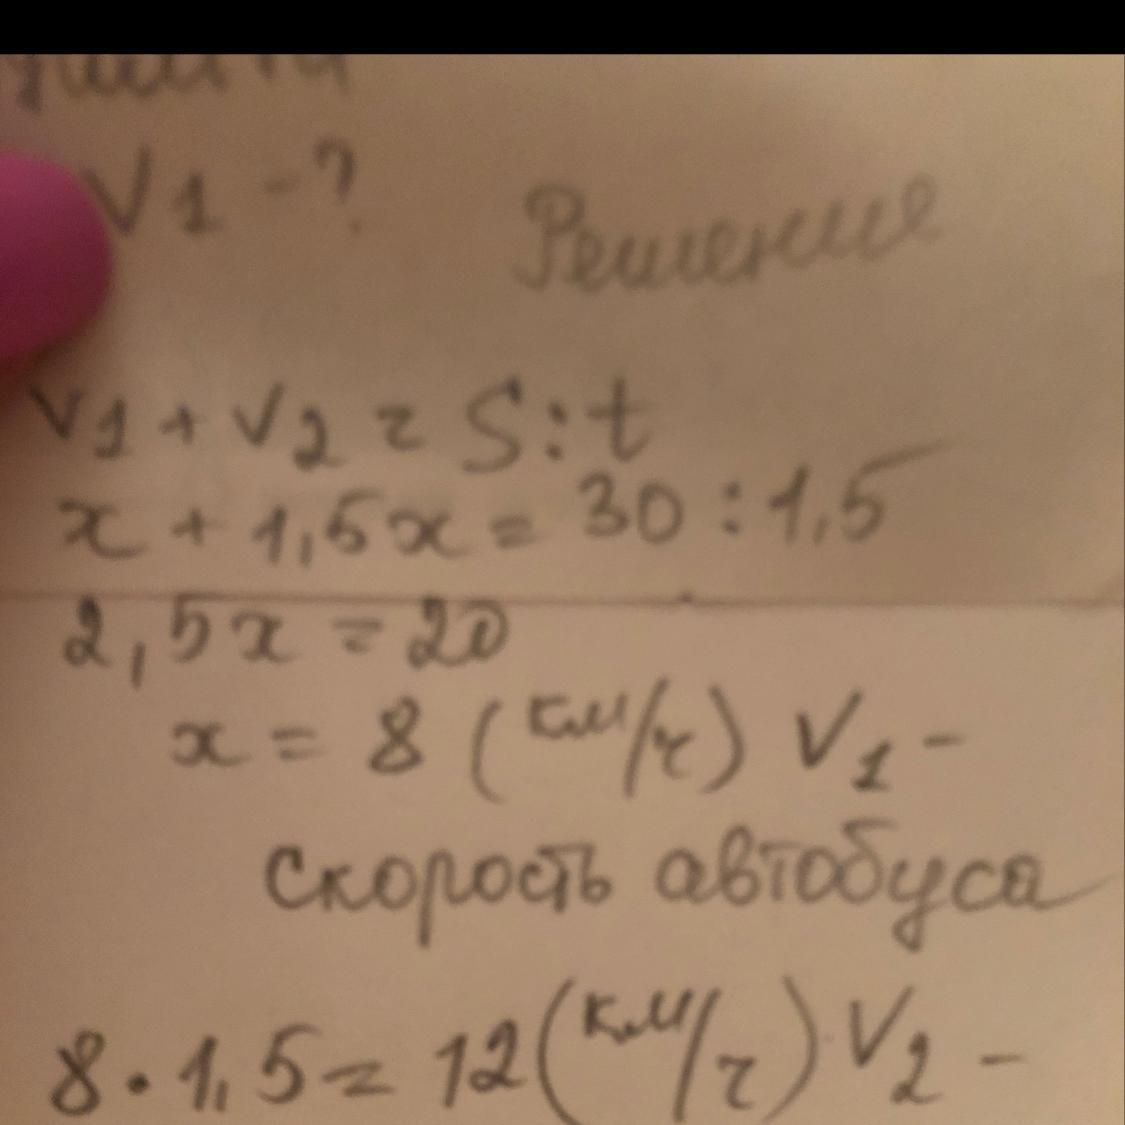 V1 - ?
Решение
V1 + V2 = S : t
x + 1,5x = 30 : 1,5
2,5x = 20
x = 8 (км/ч) V1 -
скорость автобуса
8 · 1,5 = 12 (км/ч) V2 -